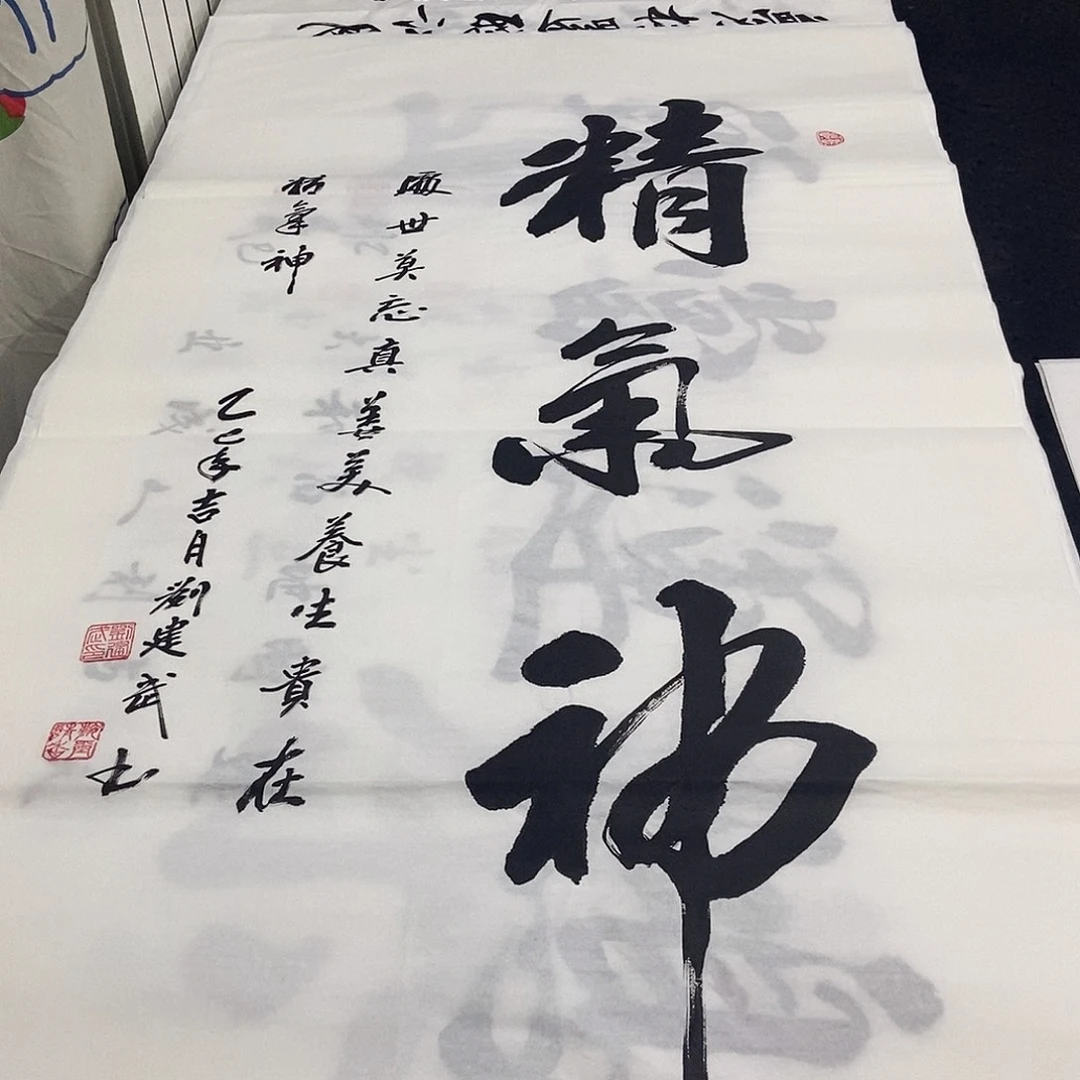 精氣神
處世莫忘真善美養生貴在
精氣神
乙巳年吉月劉建武書